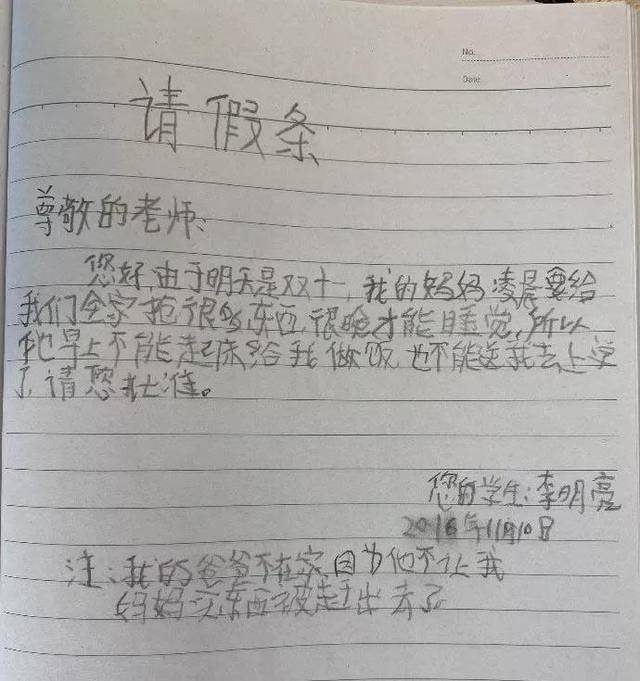 No.
Date
请假条
尊敬的老师:
您好,由于明天是双十一,我的妈妈凌晨要给
我们全家抢很多东西,很晚才能睡觉,所以
她早上不能起床给我做饭,也不能送我去上学
了,请您批准。
您的学生:李明亮
2016年11月10日
注:我的爸爸不在家因为他不让我
妈妈买东西被赶出去了